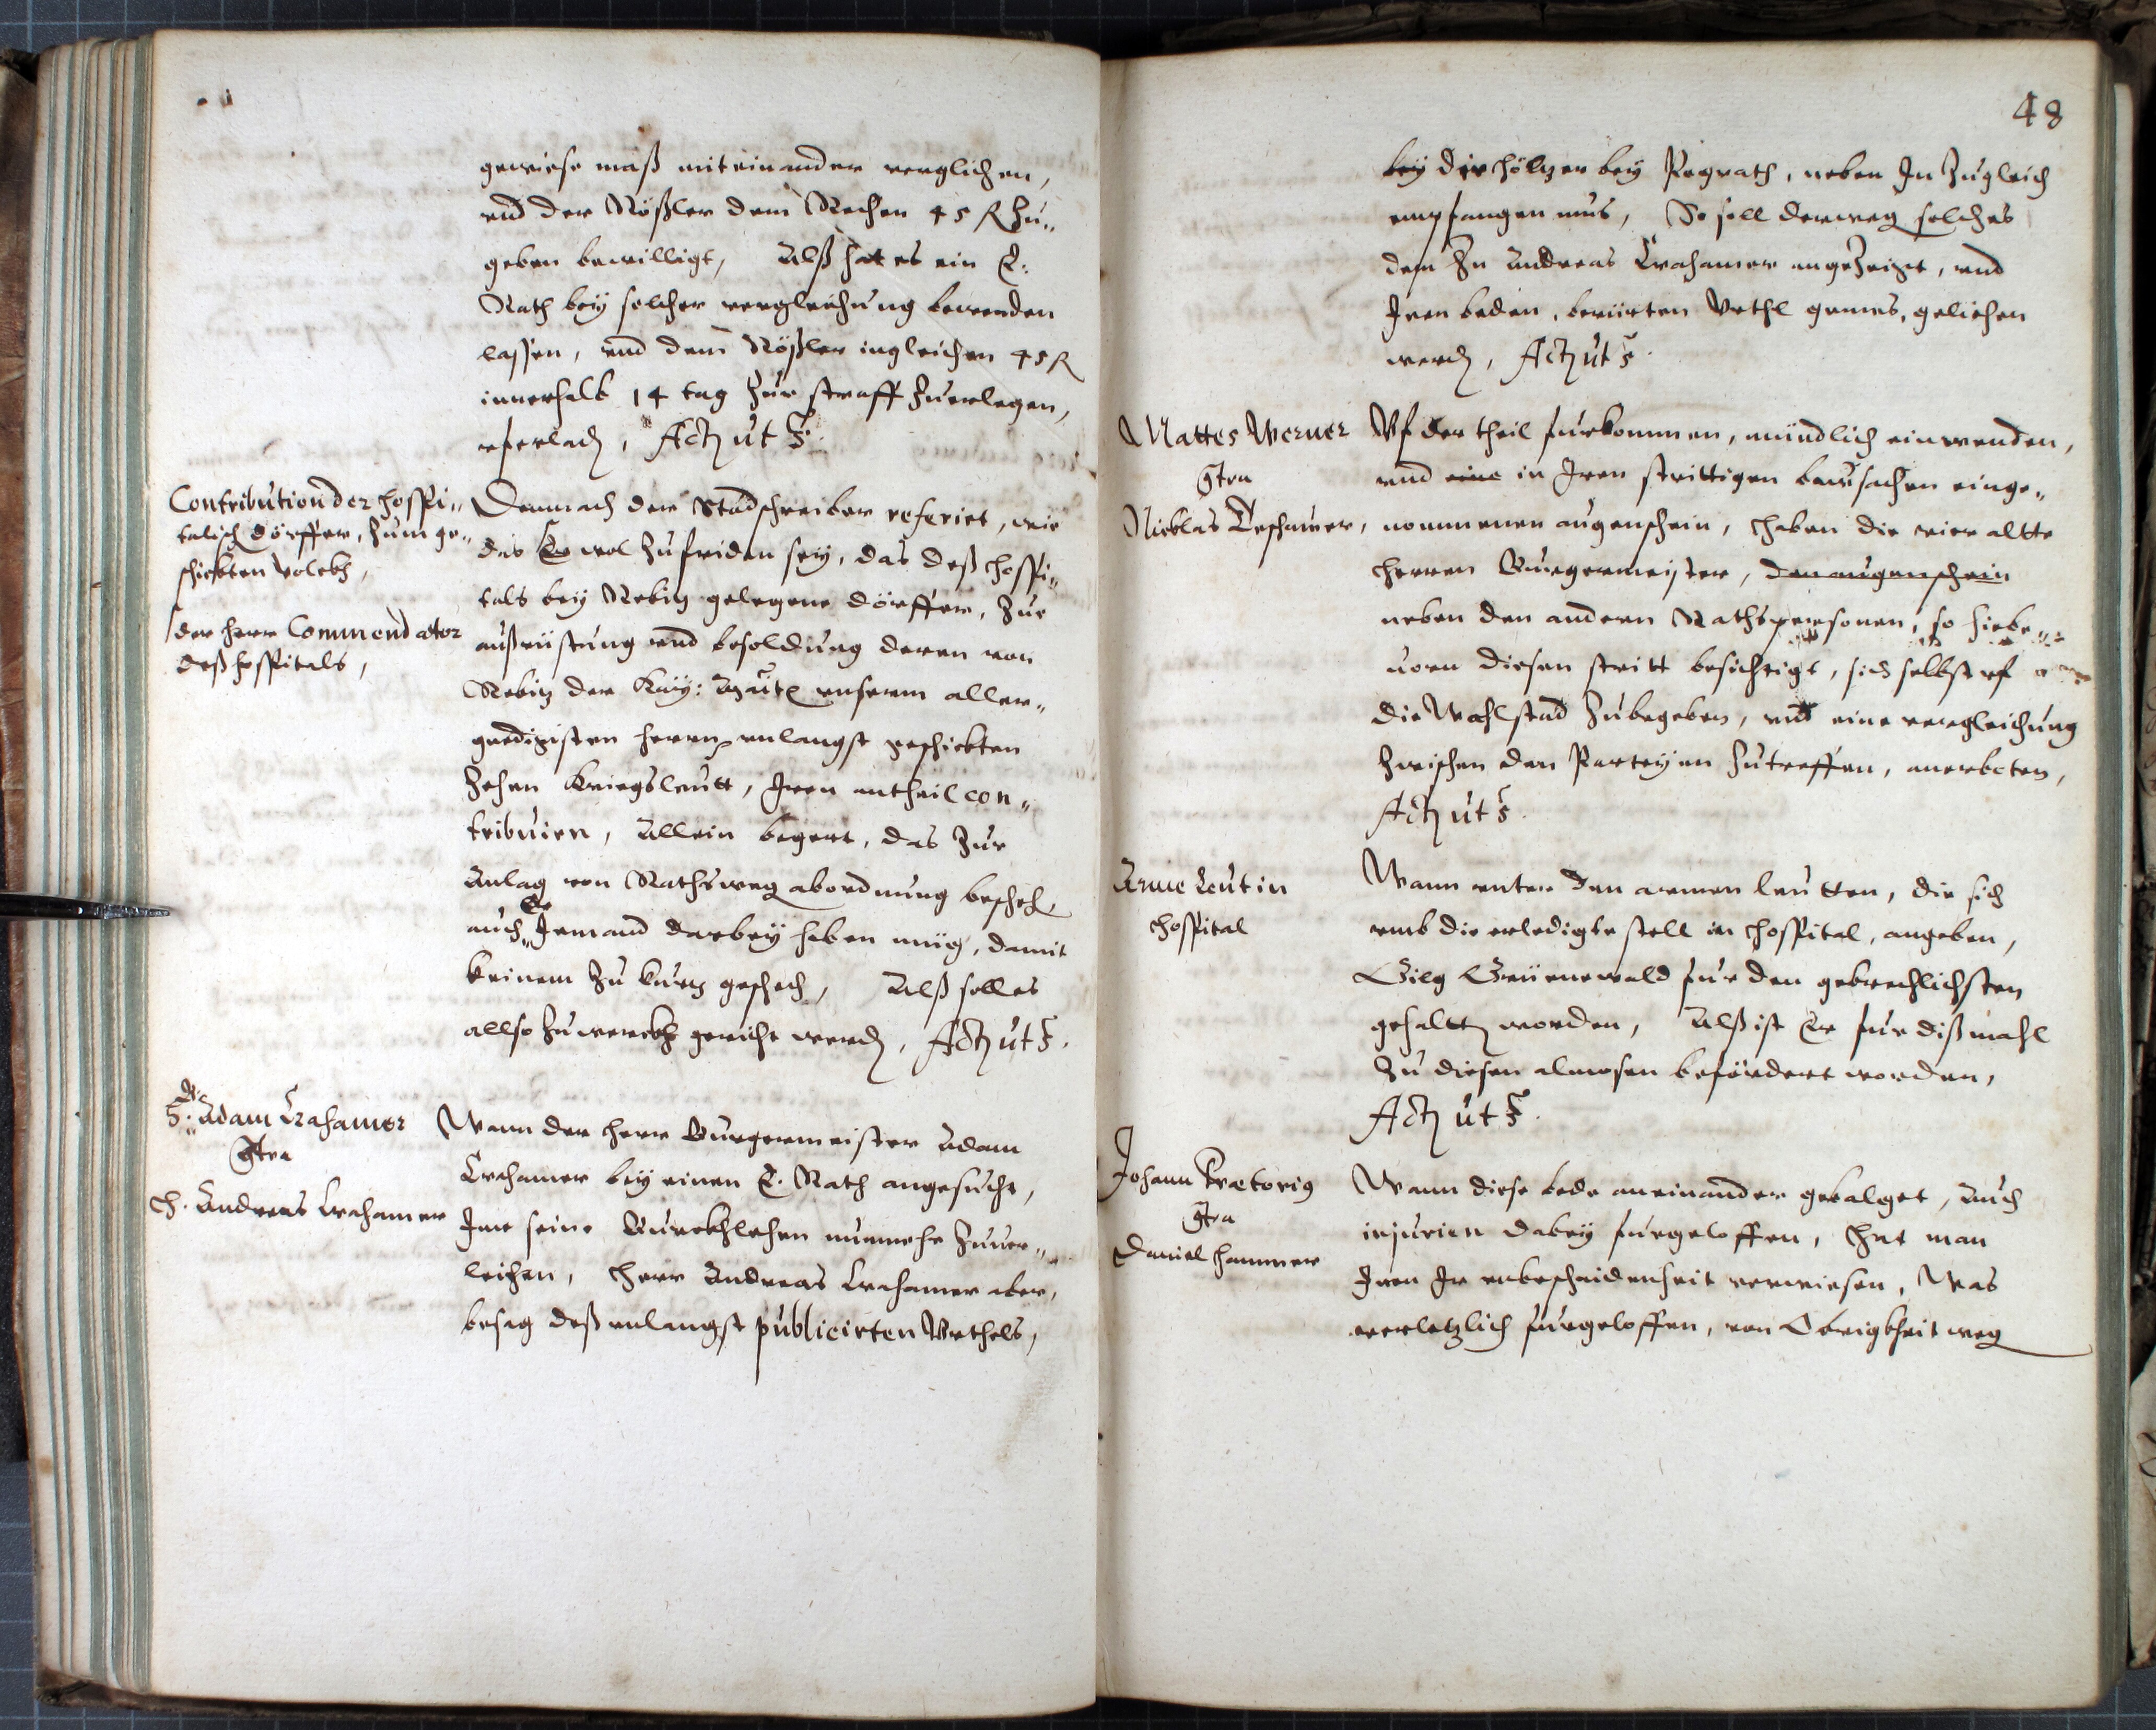 gewiese maß miteinander verglichen,
vnd der Rößler dem Rechen 45 R zu„
geben bewilligt, Alß hat es ein E:
Rath bey solcher vergleichung bewenden
lassen, vnd dem Rößler ingleichen 45 R
innerhalb 14 tag zur straff zuerlegen,
Act ut s:
Contribution der Hospi„
talisch dörffer, zum ge„
schickten volckh,
der herr Commendator
deß hospitals,
Demnach der Stadschreiber referiet, wie
das Er wol zufriden sey, das deß Hospi„
tals bey Rebitz gelegene dörffer, zur
außrüstung vnd besoldung deren von
Rebitz der Kay: Maiest vnserm aller„
gnedigisten herrn vnlangst geschickten
zehen Kriegsleutt, Iren antheil con„
tribuirn, Allein begert, das zur
Anlag von Rathsweg abordnung bescheh
auch Er Jemand darbey haben müg, damit
keinem zu kurtz geschech, Alß soll es
allso zu werckh gericht werd, Act ut s.
H: B: Adam Crahamer
Ctra
H. Andreas Crahamer
Wann der herr Burgermeister Adam
Crahamer bey einen E. Rath angesucht,
Ime seine Burckhlehen nunmehr zuuer„
leihen, Herr Andreas Crahamer aber,
besag deß vnlangst publicirten Vrthels,
48
bey die höltzer bey Pograth, neben Im zugleich
empfangen mus, So soll derweg solches
dem Hn Andreas Crahamer angezeigt, vnd
Iren beden, berürten Vrthl gemes, geliehen
werd, Act ut s.
Mattes Werner
Ctra
Nicklas Teschauer,
Vf der theil furkommen, mündlich einwenden,
vnd eine in Iren strittigen bausachen einge„
nommenen augenschein, Haben die vier altte
Herren Burgermeister, den augenschein
neben den andern Rathspersonen, so hiebe„
uorn diesen stritt besichtigt, sich selbst vf
die Wahlstad zubegeben, vnd eine vergleichung
zwischen den Parteyen zutreffen, anerboten,
Act ut s.
Arme Leut in
Hospital
Wann vnter den armen leutten, die sich
vmb die erledigte stell in Hospital, angeben,
Gilg Grünewald fur den gebrechlichsten
gehaltt worden, Alß ist Er fur dißmahl
zu diesen almosen befördert worden,
Act ut s.
Johann Prætorig
Ctra
Daniel Hammer
Wann diese bede aneinander gebalget, Auch
injurien dabey furgeloffen, Hat man
Iren Ir vnbeschaidenheit verwiesen, Was
verletzlich furgeloffen, von Obrigkheit weg